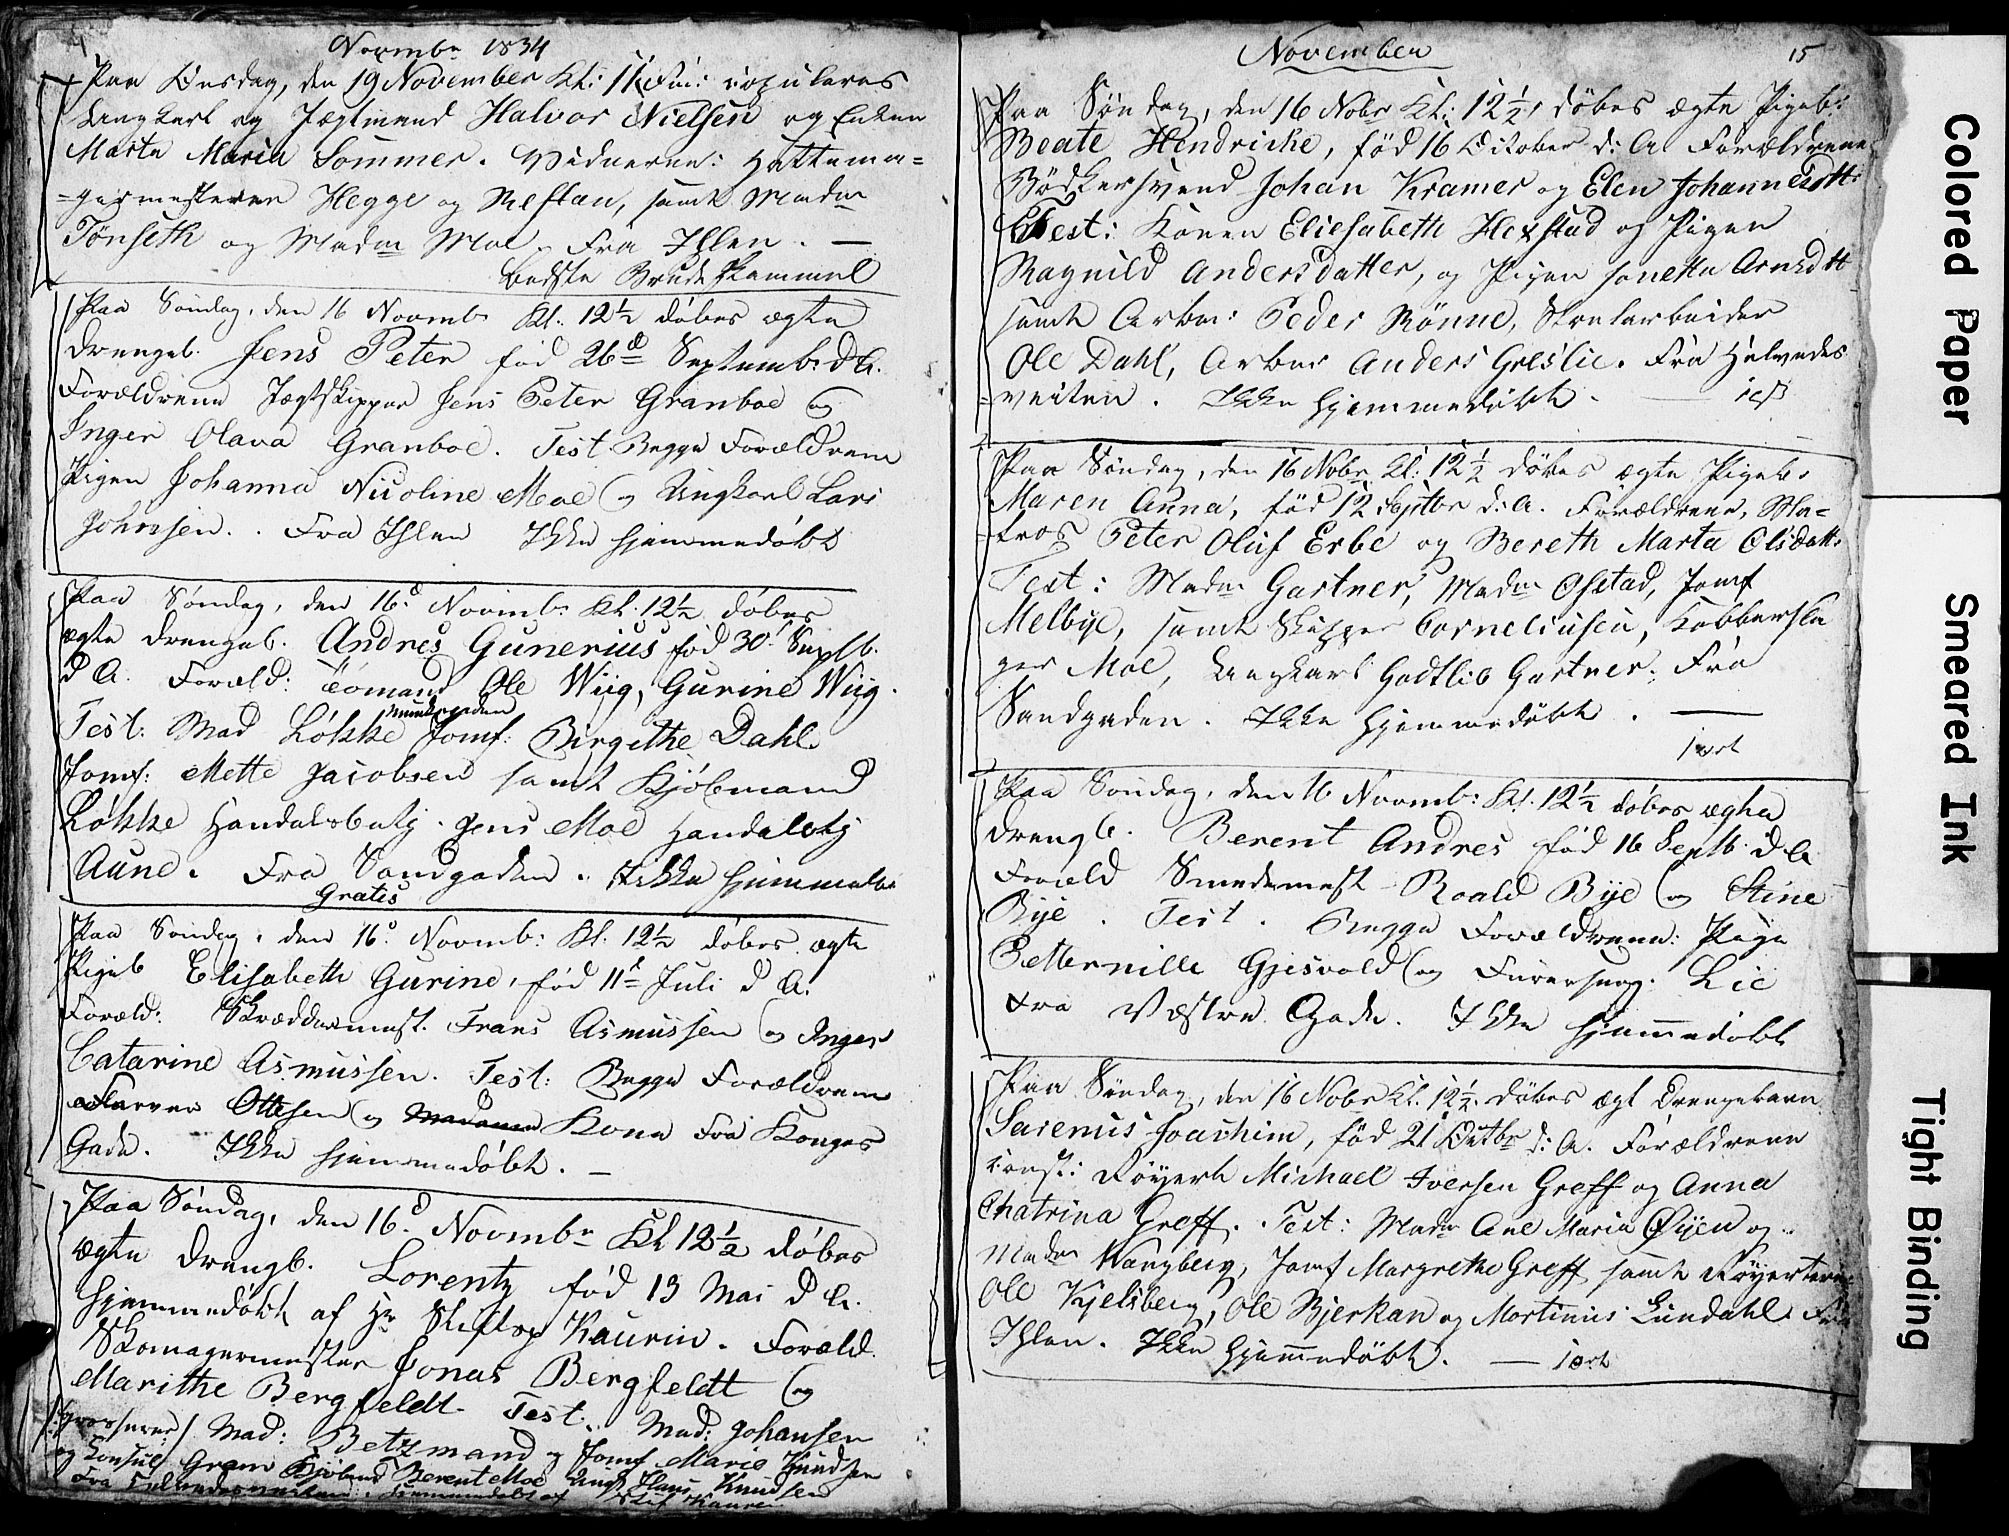 Novmbr 1834
Paa Onsdag, den 19 November Kl: 11 Fm: copuleres
Ungkarl og Jægtmand Halvor Nielsen og Enken
Marta Maria Sommer. Vidnerne: Hattema=
=germesterne Hegge og Reftan, samt Madm
Tønseth og Madm Moe. Fra Ihlen. —
bedste Brudeskammel
Paa Søndag, den 16 Novmb Kl: 12½ døbes ægte
Drengeb. Jens Peter fød 26d Septemb. d A.
Forældrene Jægtskipper Jens Peter Granboe og
Inger Olava Granboe. Test Begge Forældrene
Pigen Johanna Nicoline Moe og Ungkarl Lars
Johnsen. Fra Ihlen Ikke hjemmedøbt
Paa Søndag, den 16d Novmb. Kl. 12½ døbes
ægte Drengeb. Andres Gunerius fød 30t Septb.
d A. Foræld: Tømand Ole Wiig, Gurine Wiig.
Munkegaden
Test: Mad Løkke Jomf: Birgithe Dahl
Jomf: Mette Jacobsen samt Kjøbmand
Løkke Handelsbetj. Jens Moe Handelsbtj
Aune. Fra Sandgaden. Ikke hjemmedbt
Gratis
Paa Søndag, den 16d Novmb: Kl. 12½ døbes ægte
Pigeb Elisabeth Gurine, fød 11t Juli d A.
Foræld: Skræddermest. Frans Asmussen og Inger
Catarine Asmussen. Test: Begge Forældrene
Farver Ottesen og Madame Kone Fra Konges
Gade. Ikke hjemmedøbt. —
Paa Søndag, den 16d Novmbr Kl 12½ døbes
ægte Drengb. Lorentz fød 13 Mai d A.
Hjemmedøbt af Hr Stiftsp Kaurin. Foræld.
Skomagermester Jonas Bergfeldt og
Marithe Bergfeldt. Test. Mad: Johansen
Mad: Betzmand og Jomf Marie Knudsen
og Consul Gram Kjøbmd Berent Moe Ungk Hans Knudsen
Fra
November 15
Paa Søndag, den 16 Nobr Kl: 12½, døbes ægte Pigeb:
Beate Hendricke, fød 16 October d: A Forældrene
Bødkersvend Johan Kramer og Elen Johannesdtt:
Test: Konen Eliesabeth Hexstad og Pigen
Ragnild Andersdatter, og Pigen Janetta Arnsdtt
samt Arbm: Peder Rønne, Skralarbeider
Ole Dahl, Arbm Anders Greslie. Fra Helvedes
=veiten. Ikke hjemmedøbt. —
Paa Søndag, den 16 Nobr Kl: 12½ døbes ægte Pigeb:
Maren Anna, fød 12 Septbr d: A. Forældrene, Ma=
=tros Peter Oluf Erbe og Bereth Marta Olsdatt:
Test: Madm Gartner, Madm Ofstad, Jomf
Melbye, samt Skipper Corneliusen, Kobbersla
ger Moe, Ungkarl Godtlib Gartner. Fra
Sandgaden. Ikke hjemmedøbt. —
1 ort
Paa Søndag, den 16 Novmb: Kl. 12½ døbes ægte
Drengb. Berent Andres fød 16 Septb. d A
Foræld Smedemest Roald Bye og Stine
Bye. Test. Begge Forældrene: Pige
Petternille Gjesvold og Furersserg. Lie
Fra Vestre Gade. Ikke hjemmedøbt
Paa Søndag, den 16 Nobr Kl. 12½ døbes ægt Drengebarn
Sarenus Joachim, fød 21 Octbr d: A. Forældrene
const: Røyert Michael Iversen Greff og Anna
Chatrina Greff. Test: Madm Ane Maria Øyen og
Madm Wangberg, Jomf Margrethe Greff samt Røyerterne
Ole Kjelsberg, Ole Bjerkan og Mortinus Lundahl Fra
Ihlen. Ikke hjemmedøbt. — 1 ort
Colored Paper
Smeared Ink
Tight Binding